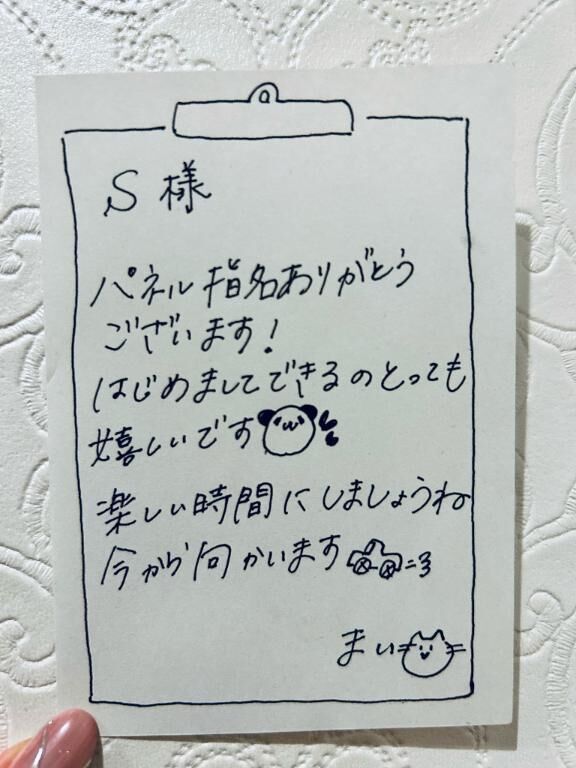 S様
パネル指名ありがとう
ございます!
はじめましてできるのとっても
嬉しいです
楽しい時間にしましょうね
今から向かいます
まい